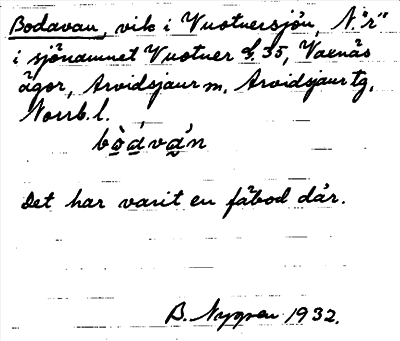 Bodavan, vik i Vuotnersjön, N. "r"
i sjönamnet Vuotner f. 35, Vaxnäs
ägor, Arvidsjaur m, Arvidsjaur tg,
Norrb. l.
bòdván
Det har varit en fäbod där.
B. Nygren 1932.